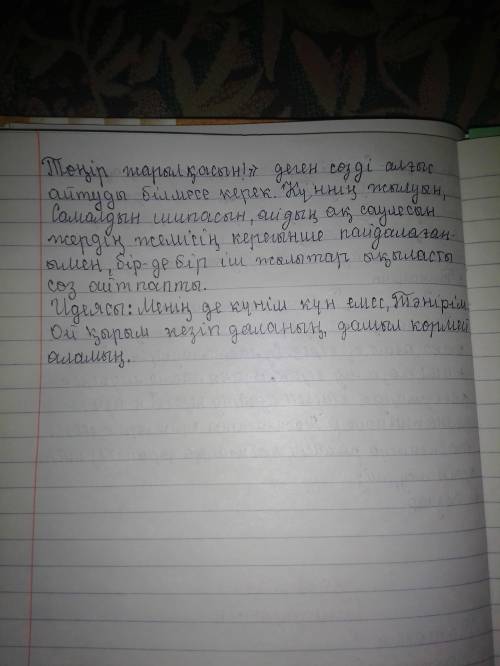 Тәңір жарылқасын!» деген сөзді алғыс
айтуды білмесе керек. Күннің жылуын,
Самалдын шипасын, айдың ақ саулесын
жердің жемісің керегынше пайдалаған-
ымен, бір-де бір іш жылытар ықыласты
сөз айтпапты.
Идеясы: Менің де күнім күн емес, Тәнірім
Ой қырым кезіп даланың, дамыл көрмей
аламың.